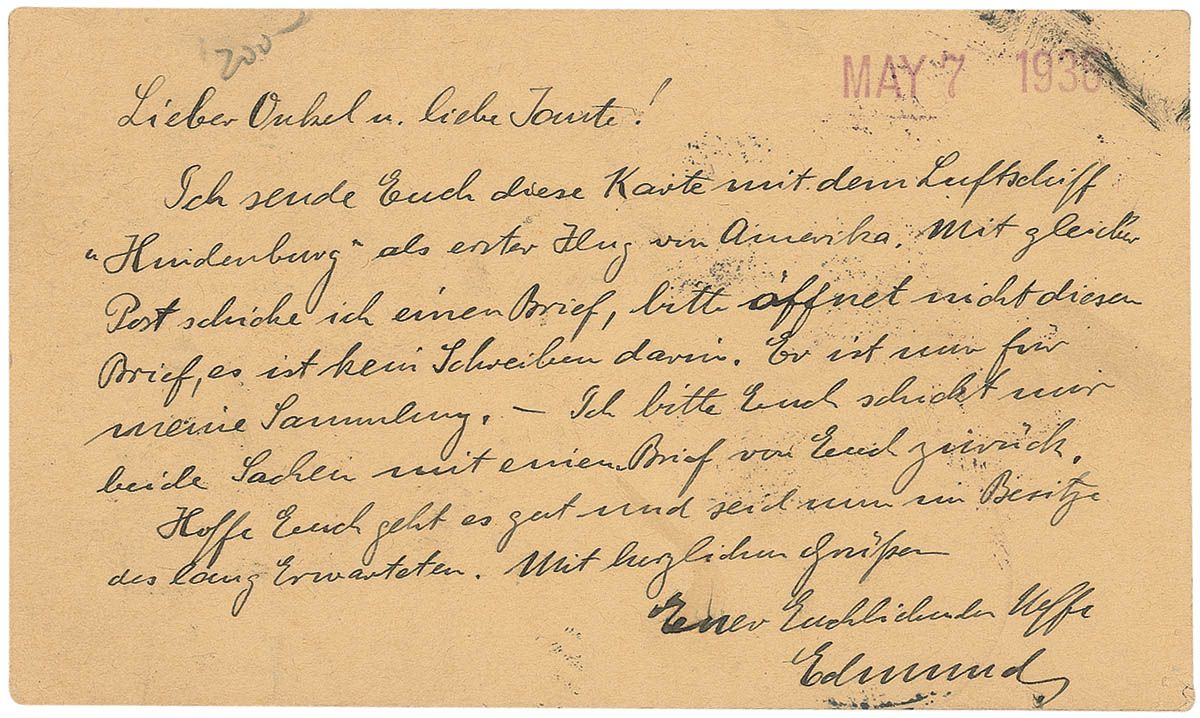 200-
MAY 7 1936
Lieber Onkel u. liebe Tante!
Ich sende Euch diese Karte mit dem Luftschiff
"Hindenburg" als erster Flug von Amerika. Mit gleicher
Post schicke ich einen Brief, bitte öffnet nicht diesen
Brief, es ist kein Schreiben darin. Er ist nur für
meine Sammlung. — Ich bitte Euch schickt mir
beide Sachen mit einem Brief von Euch zurück.
Hoffe Euch geht es gut und seid nun im Besitze
des lang Erwarteten. Mit herzlichen Grüßen
Euer Euchliebender Neffe
Edmund